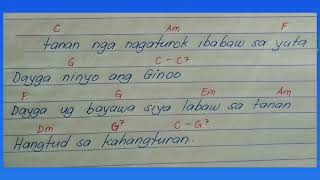 C Am F
tanan nga nagaturok ibabaw sa yuta
G C - C7
Dayga ninyo ang Ginoo
F G Em Am
Dayga ug bayawa siya labaw sa tanan
Dm G7 C - G7
Hangtud sa kahangturan.